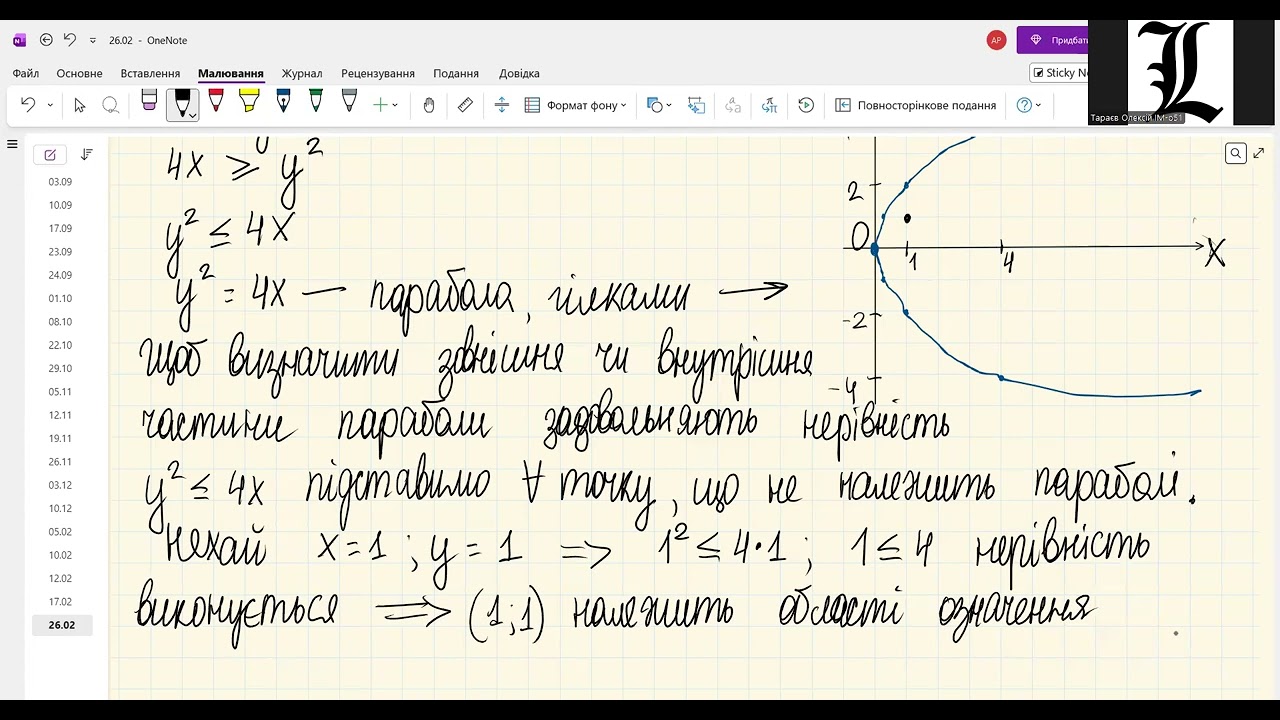 26.02 - OneNote
АР
Придбати
Файл Основне Вставлення Малювання Журнал Рецензування Подання Довідка
Sticky No
Формат фону
Повносторінкове подання
L
Тараєв Олексій ІМ-о51
03.09
10.09
17.09
23.09
24.09
01.10
08.10
22.10
29.10
05.11
12.11
19.11
26.11
03.12
10.12
05.02
10.02
12.02
17.02
26.02
4x ⩾ y²
y² ≤ 4x
y² = 4x — парабола, гілками →
Щоб визначити зовнішня чи внутрішня
частини параболи задовольняють нерівність
y² ≤ 4x підставимо ∀ точку, що не належить параболі.
Нехай x = 1 ; y = 1 => 1² ≤ 4·1 ; 1 ≤ 4 нерівність
виконується => (1;1) належить області означення
2
0
1
4
X
-2
-4